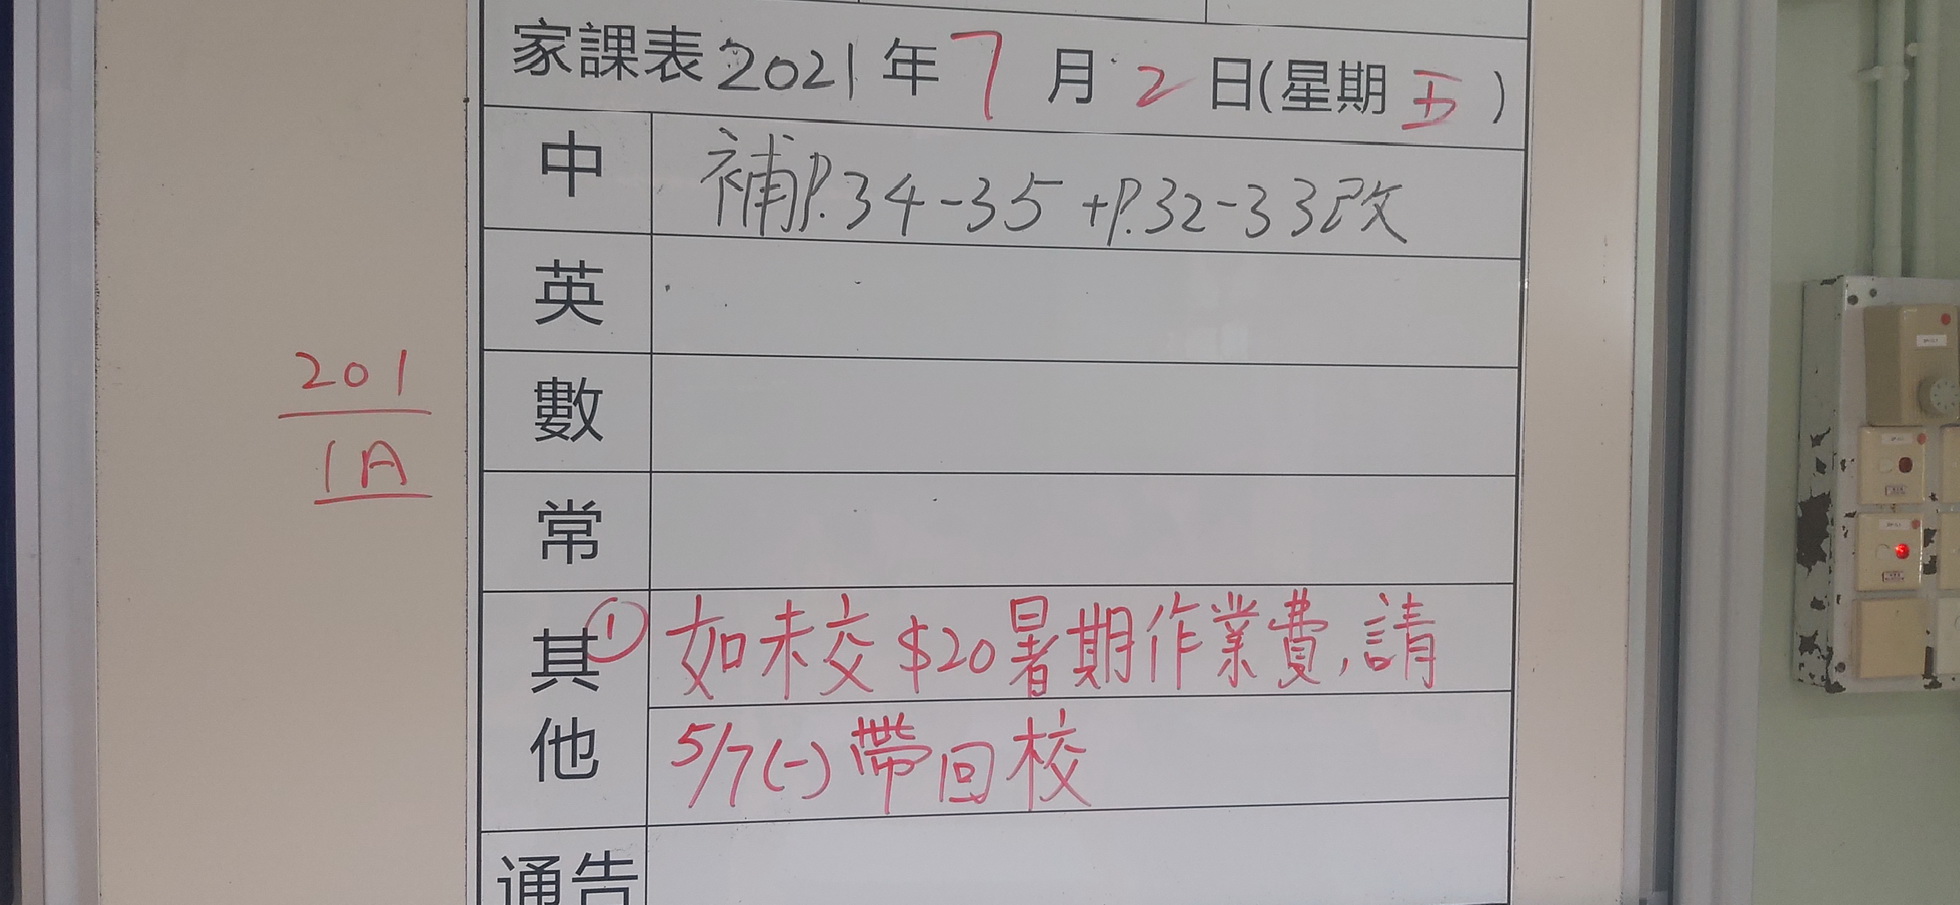 家課表 2021 年 7 月 2 日(星期 五)
中 補P.34-35 +P.32-33改
英
數
常
其他 ① 如未交$20暑期作業費,請
5/7(一)帶回校
通告
201
1A